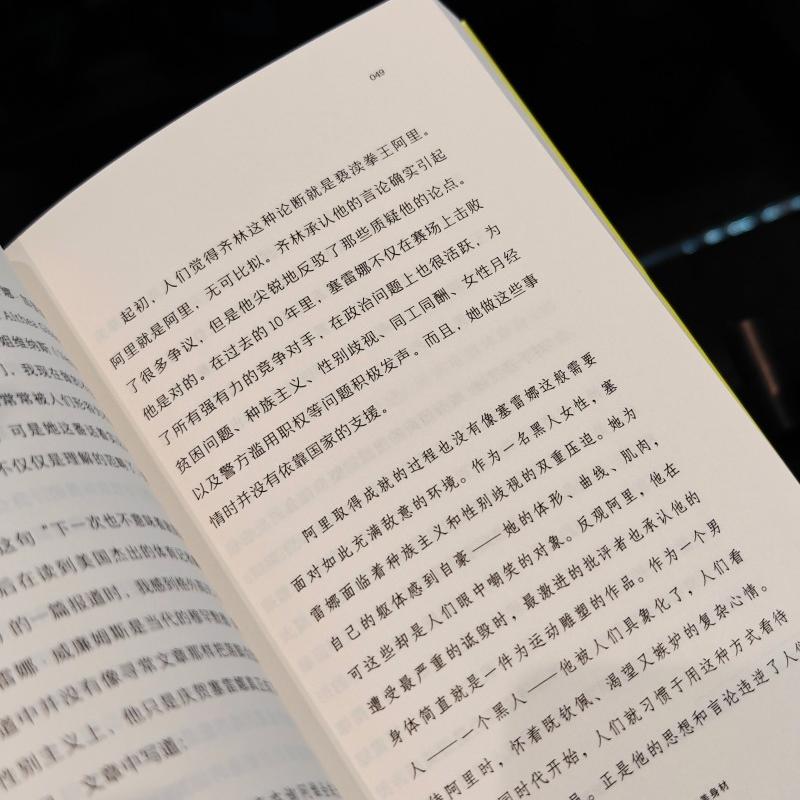 Althea G
姐维纳斯（
常常被人们形容
可是她这番话
不仅仅是理解的范畴
这句“下一次也不意味着
后在读到美国杰出的体育记
的一篇报道时，我感到格外
雷娜·威廉姆斯是当代的穆罕默德
道中并没有像寻常文章那样把
性别主义上，他只是庆贺塞雷娜真正
文章中写道：
049
起初，人们觉得齐林这种论断就是亵渎拳王阿里。
阿里就是阿里，无可比拟。齐林承认他的言论确实引起
了很多争议，但是他尖锐地反驳了那些质疑他的论点。
他是对的。在过去的10年里，塞雷娜不仅在赛场上击败
了所有强有力的竞争对手，在政治问题上也很活跃，为
贫困问题、种族主义、性别歧视、同工同酬、女性月经
以及警方滥用职权等问题积极发声。而且，她做这些事
情时并没有依靠国家的支援。
阿里取得成就的过程也没有像塞雷娜这般需要
面对如此充满敌意的环境。作为一名黑人女性，塞
雷娜面临着种族主义和性别歧视的双重压迫。她为
自己的躯体感到自豪——她的体形、曲线、肌肉，
可这些却是人们眼中嘲笑的对象。反观阿里，他在
遭受最严重的诋毁时，最激进的批评者也承认他的
身体简直就是一件为运动雕塑的作品。作为一个男
人——一个黑人——他被人们具象化了，人们看
待阿里时，怀着既钦佩、渴望又嫉妒的复杂心情。
同时代开始，人们就习惯于用这种方式看待
员。正是他的思想和言论违逆了人们
身材